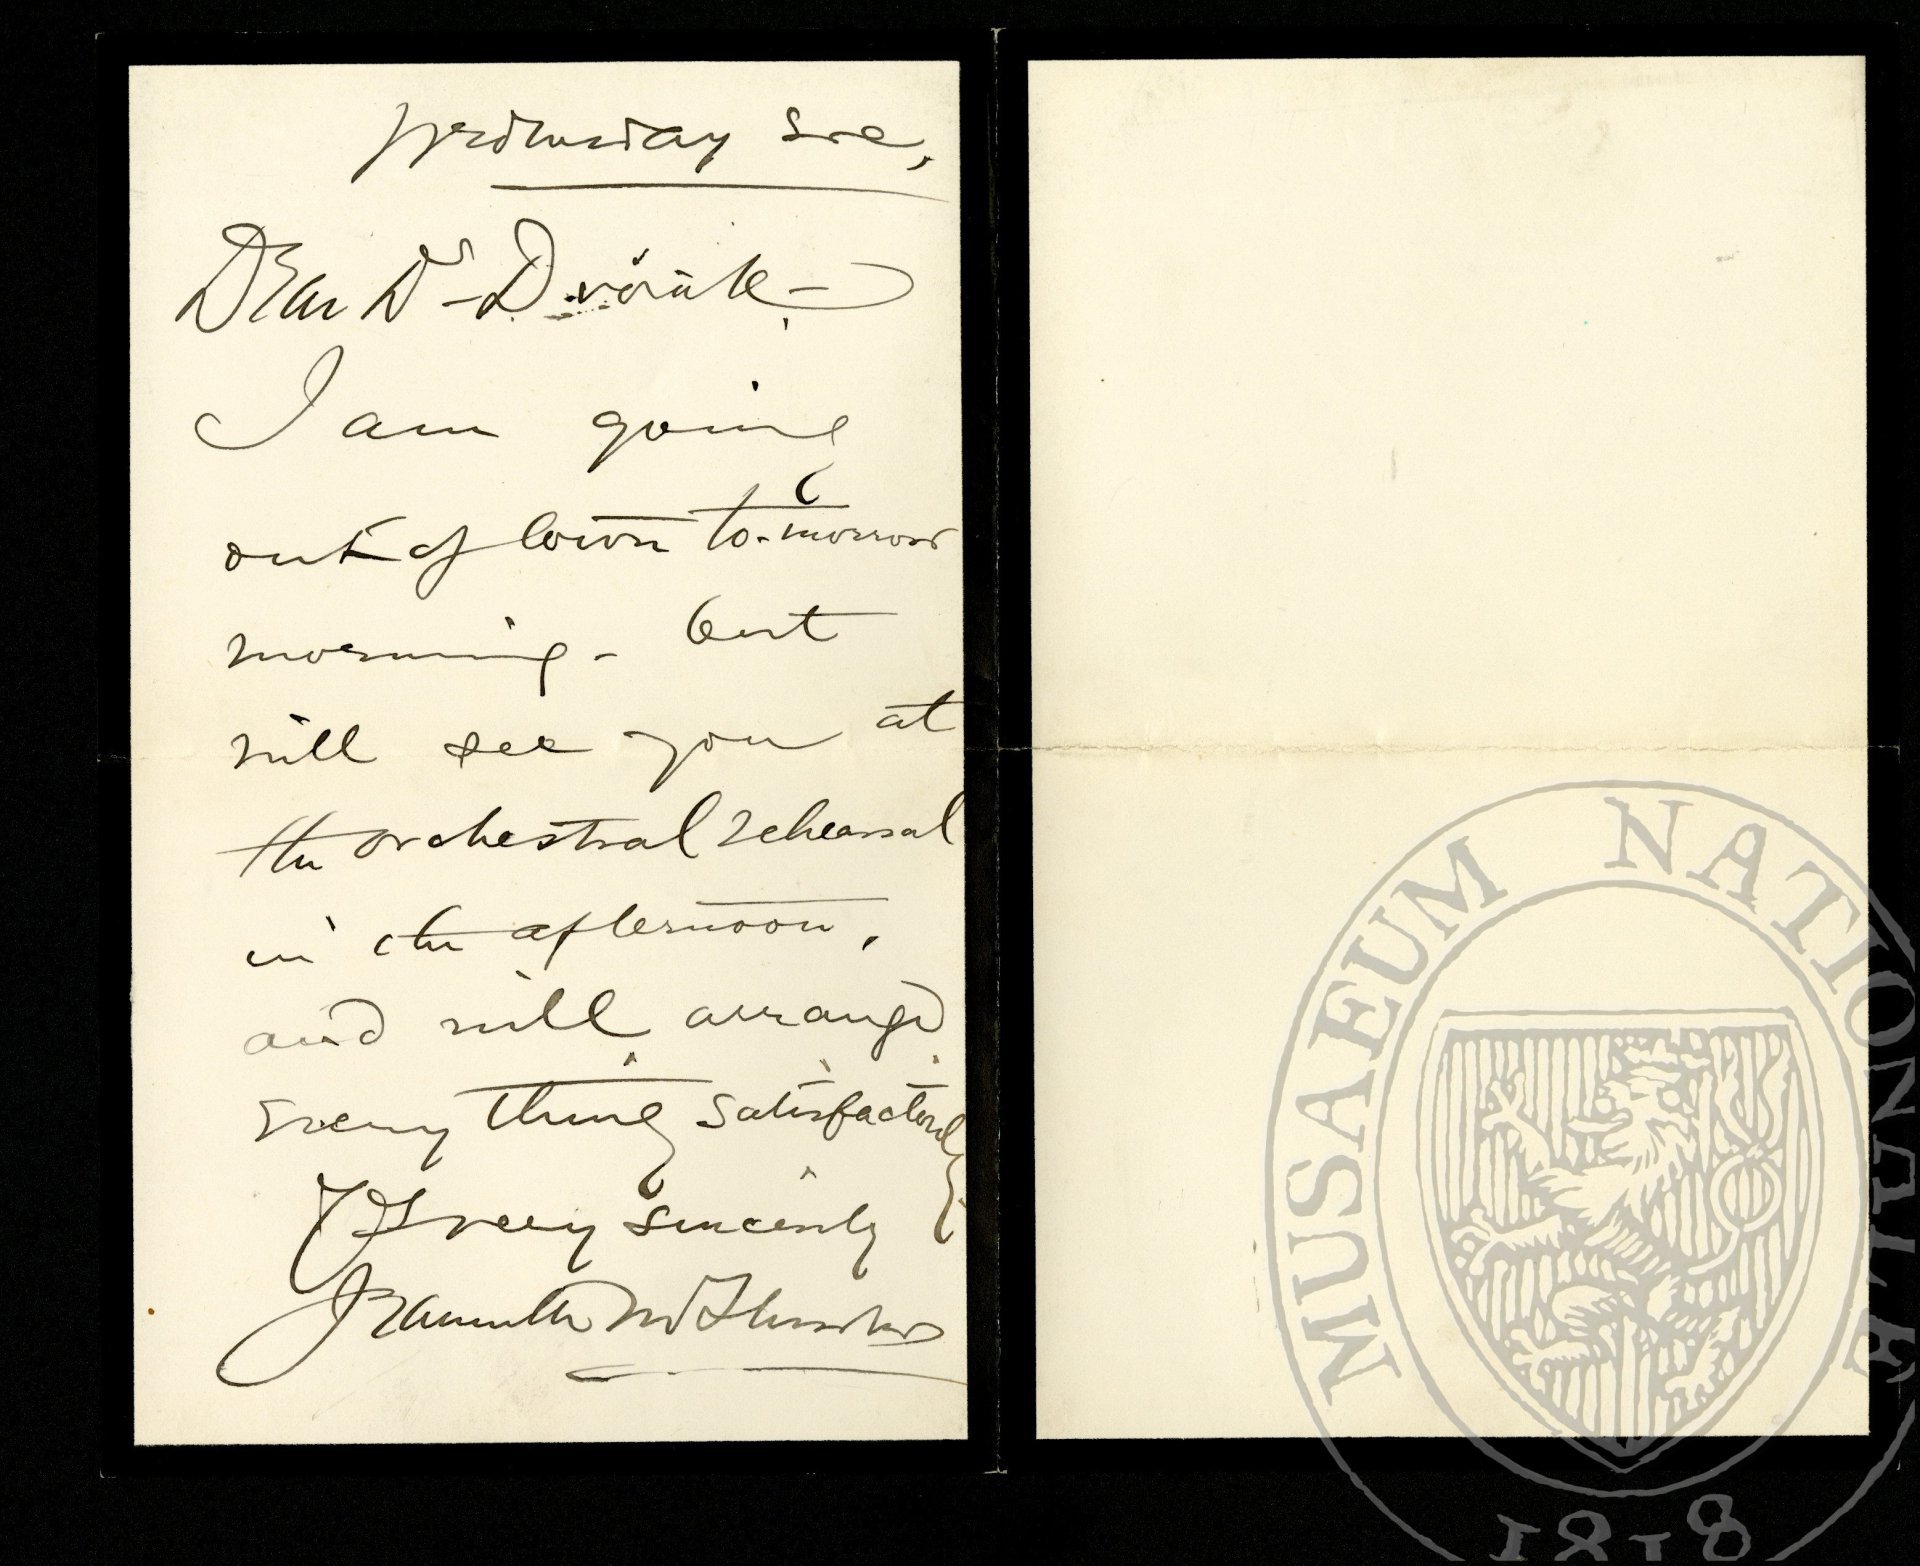 Wednesday Eve,
Dear Dr - Dvořák -
I am going
out of town to-morrow
morning - but
will see you at
the orchestral rehearsal
in the afternoon,
and will arrange
every thing satisfactorily
Yrs very sincerely
Jeannette M Thurber
MUSAEUM NATIONALE
1818